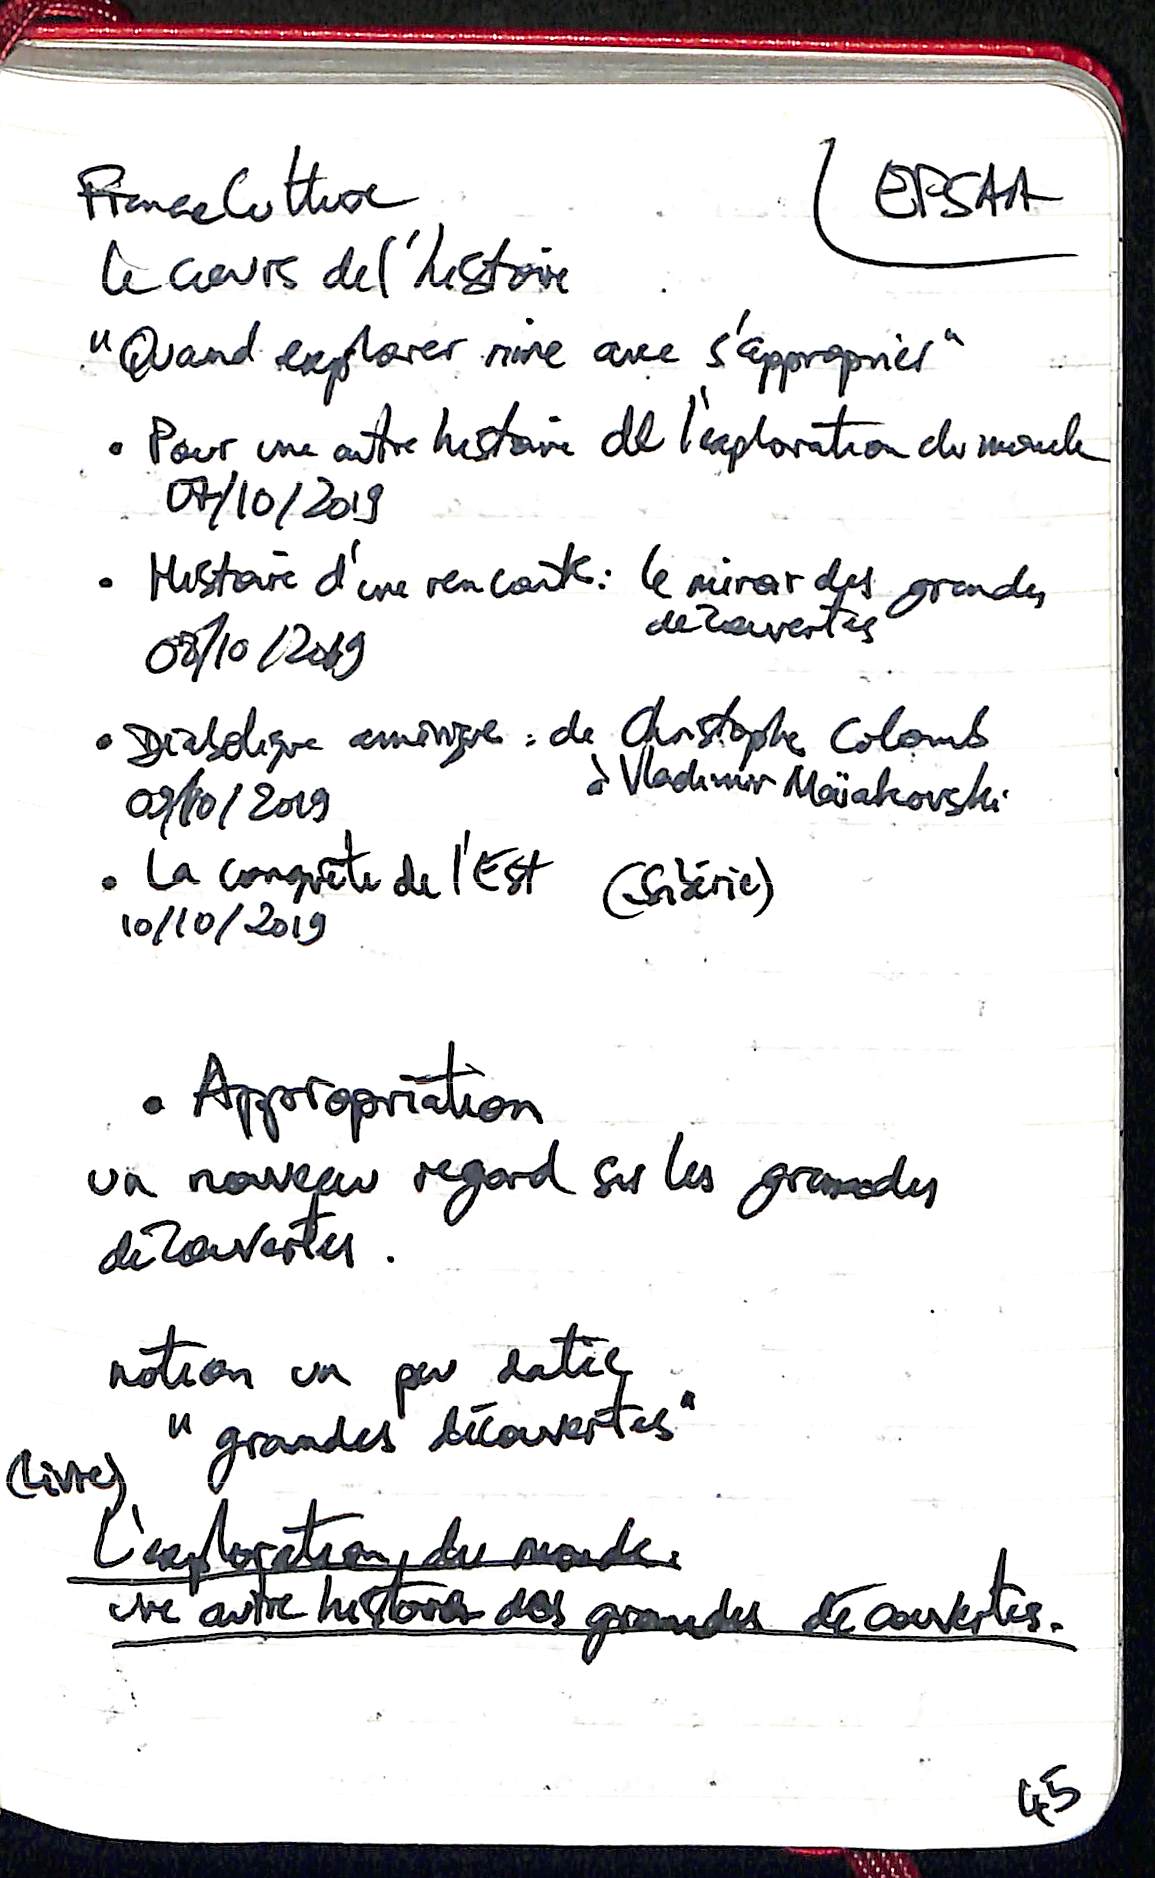 France Culture
EPSAA
Le cours de l'histoire
"Quand explorer rime avec s'approprier"
• Pour une autre histoire de l'exploration du monde
07/10/2019
• Histoire d'une rencontre : le miroir des grandes
découvertes
08/10/2019
• Diabolique Amérique : de Christophe Colomb
à Vladimir Maïakovski.
09/10/2019
• La conquête de l'Est (Sibérie)
10/10/2019
• Appropriation
un nouveau regard sur les grandes
découvertes.
notion un peu datée
"grandes découvertes"
(livre)
L'exploration du monde.
une autre histoire des grandes découvertes.
45